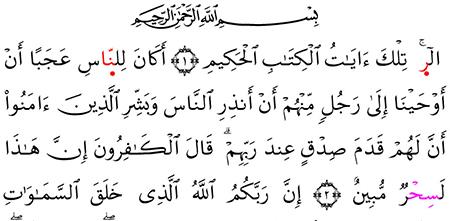 بِسْمِ اللَّهِ الرَّحْمَٰنِ الرَّحِيمِ
الٓرۚ تِلْكَ ءَايَٰتُ ٱلْكِتَٰبِ ٱلْحَكِيمِ ﴿١﴾ أَكَانَ لِلنَّاسِ عَجَبًا أَنْ
أَوْحَيْنَا إِلَىٰ رَجُلٍ مِّنْهُمْ أَنْ أَنذِرِ النَّاسَ وَبَشِّرِ الَّذِينَ ءَامَنُوا۟
أَنَّ لَهُمْ قَدَمَ صِدْقٍ عِندَ رَبِّهِمْۗ قَالَ ٱلْكَٰفِرُونَ إِنَّ هَٰذَا
لَسِحْرٌ مُّبِينٌ ﴿٢﴾ إِنَّ رَبَّكُمُ اللَّهُ الَّذِى خَلَقَ السَّمَٰوَٰتِ